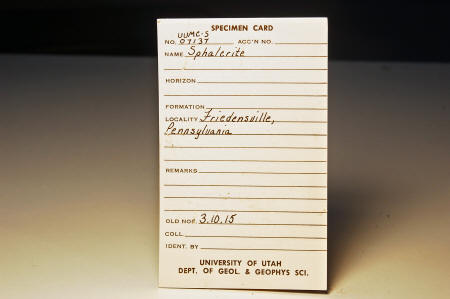 SPECIMEN CARD
UUMC-S
NO. 07137 ACC'N NO.
NAME Sphalerite
HORIZON
FORMATION
LOCALITY Friedensville,
Pennsylvania
REMARKS
OLD NO. 3.10.15
COLL.
IDENT. BY
UNIVERSITY OF UTAH
DEPT. OF GEOL. & GEOPHYS SCI.